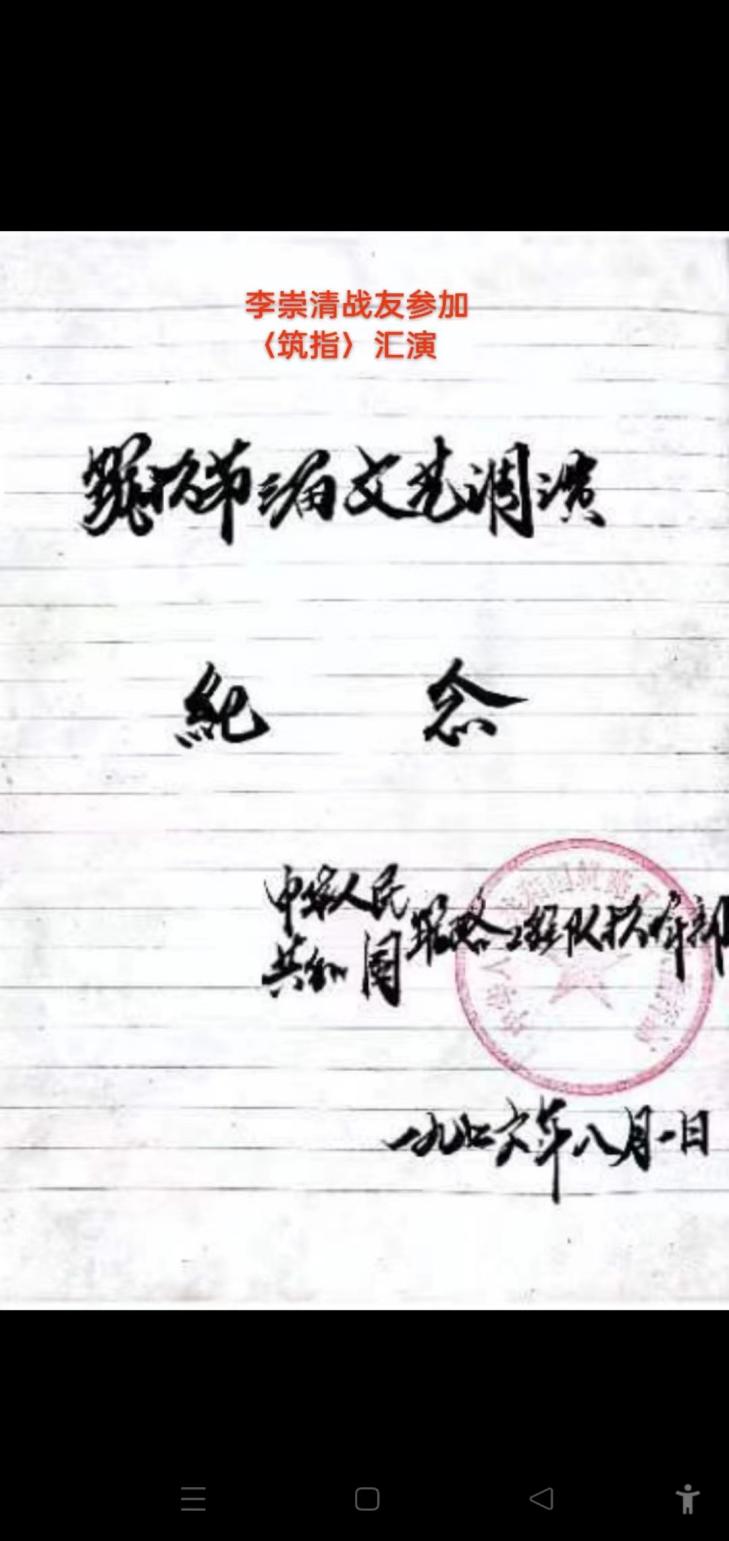 李崇清战友参加
〈筑指〉汇演
届文艺调演
紀念
中华人民
共和国 筑路工程队指挥部
一九七六年八月一日